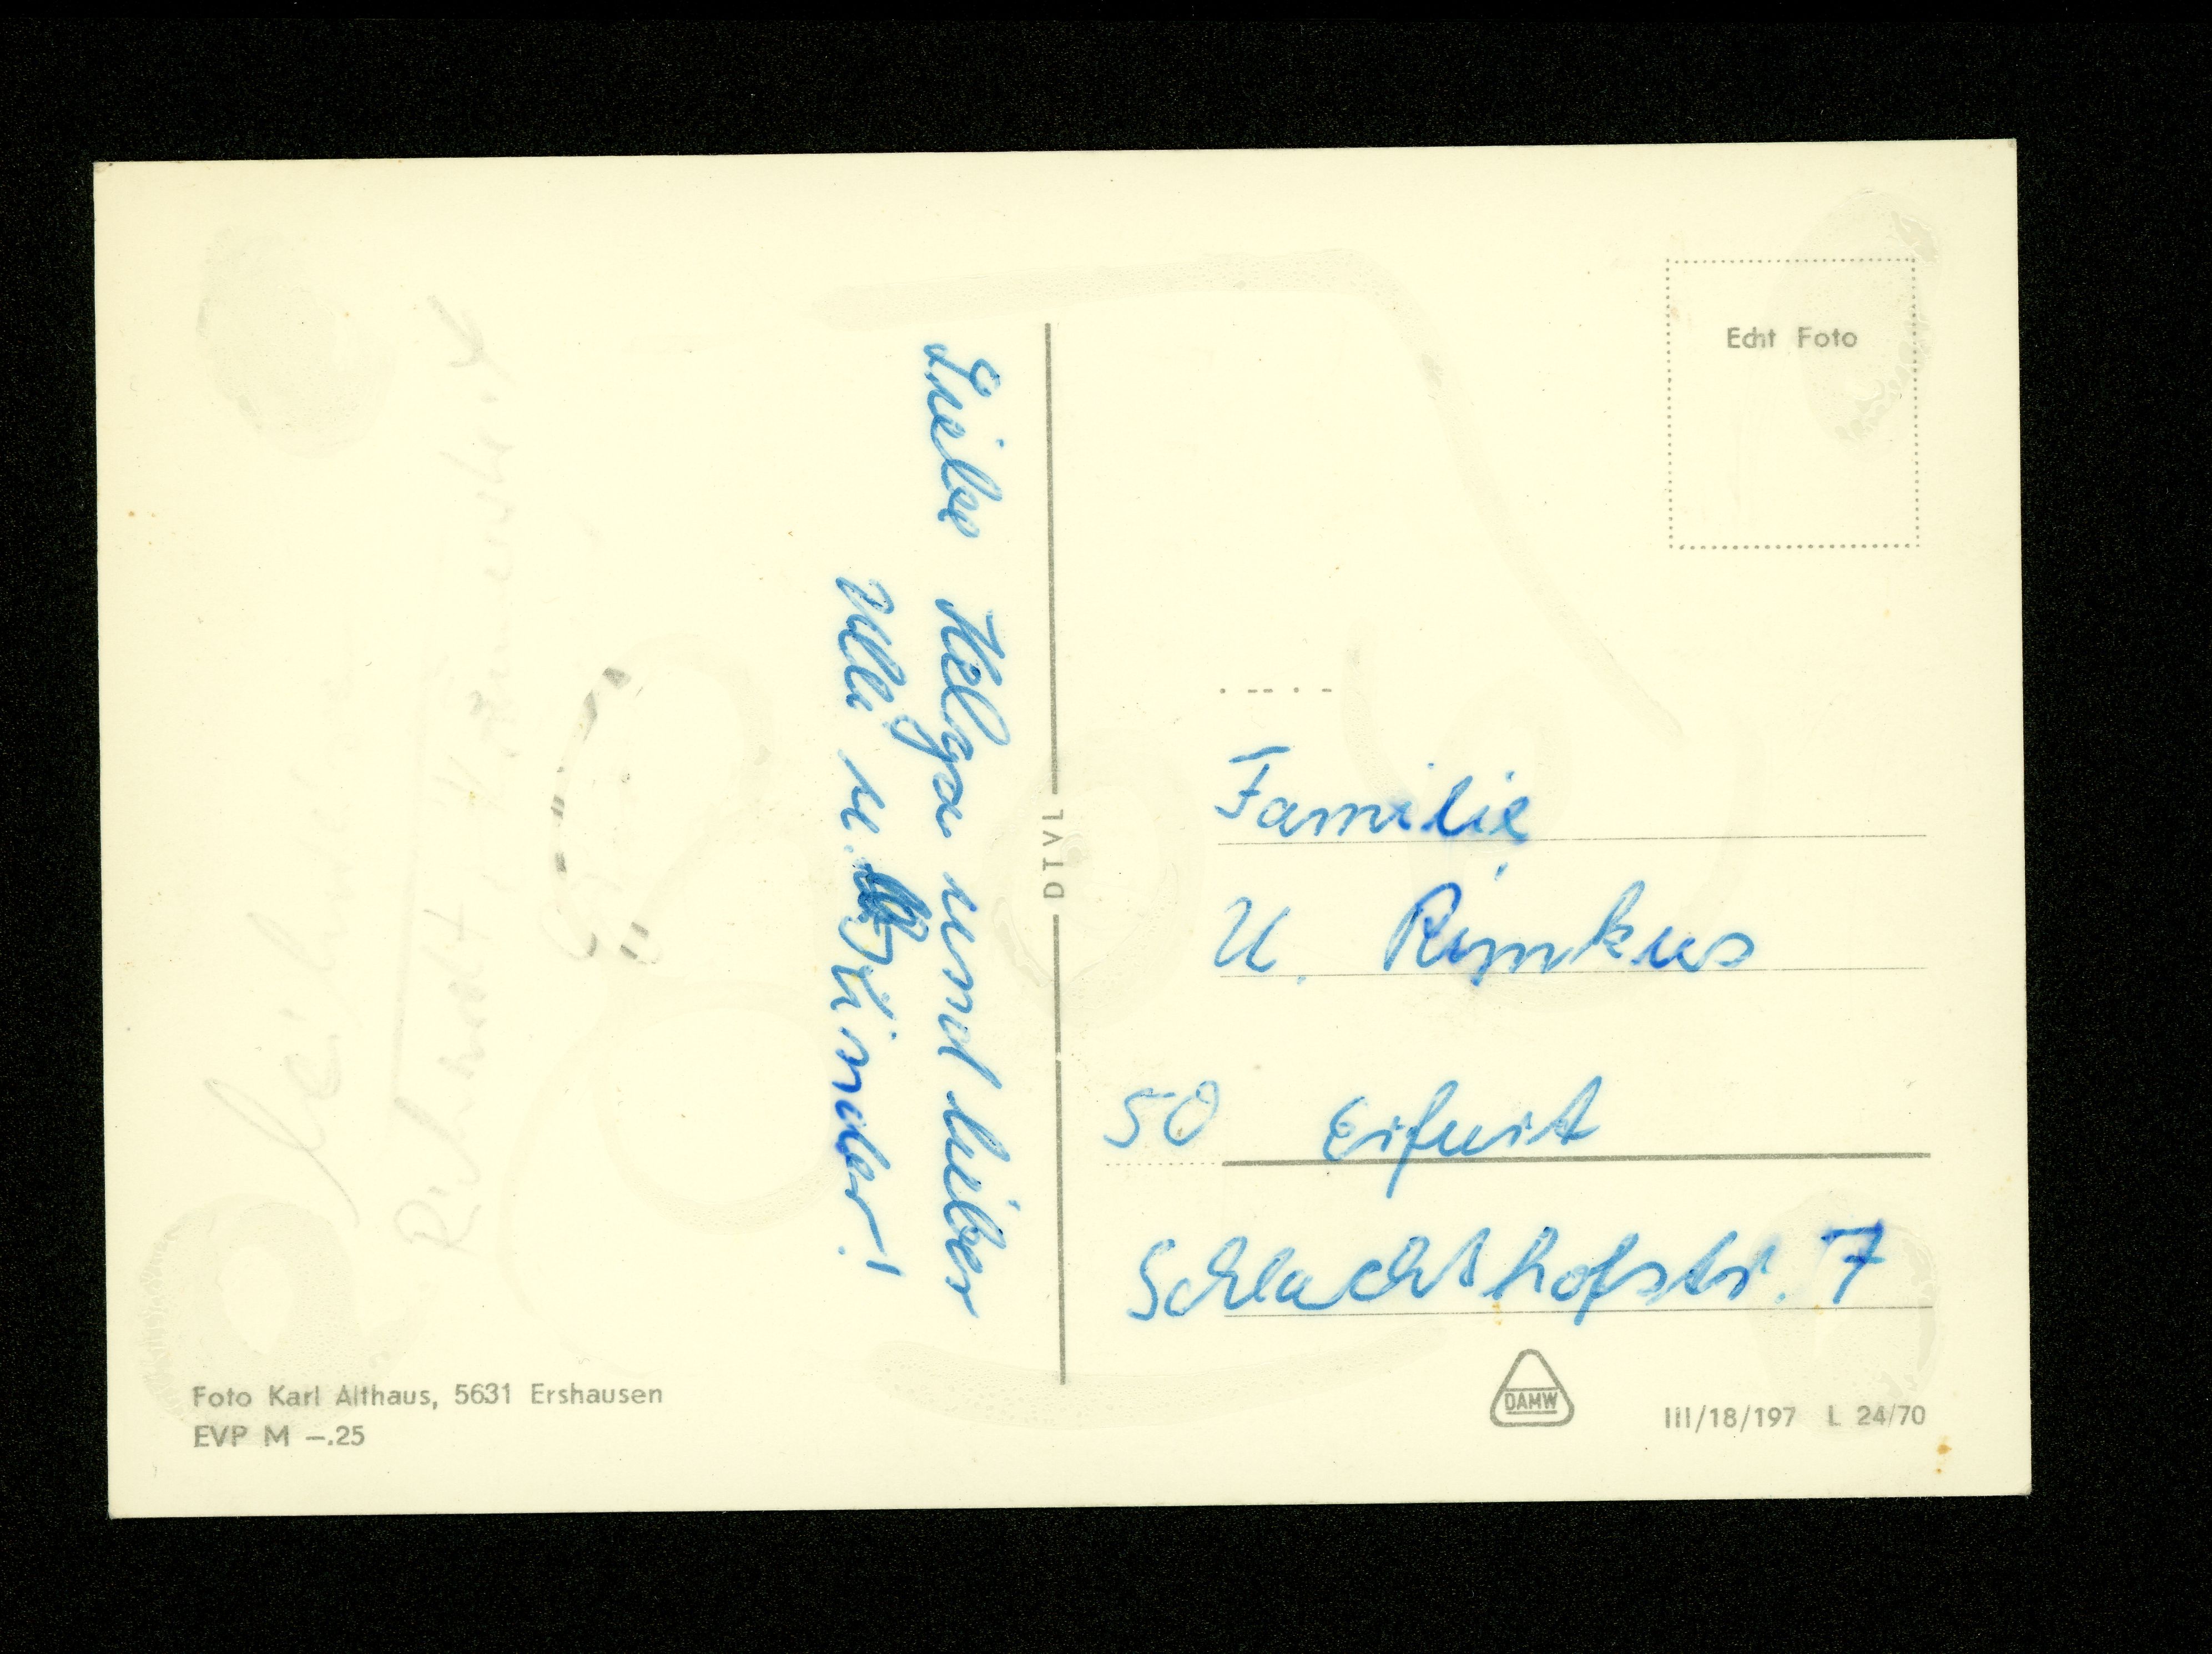 Liebe Helga und lieber
Ulli u. Kinder!
DTVL
Echt Foto
Familie
U. Rimkus
50 Erfurt
Schlachthofstr. 7
Foto Karl Althaus, 5631 Ershausen
EVP M –.25
DAMW
III/18/197 L 24/70